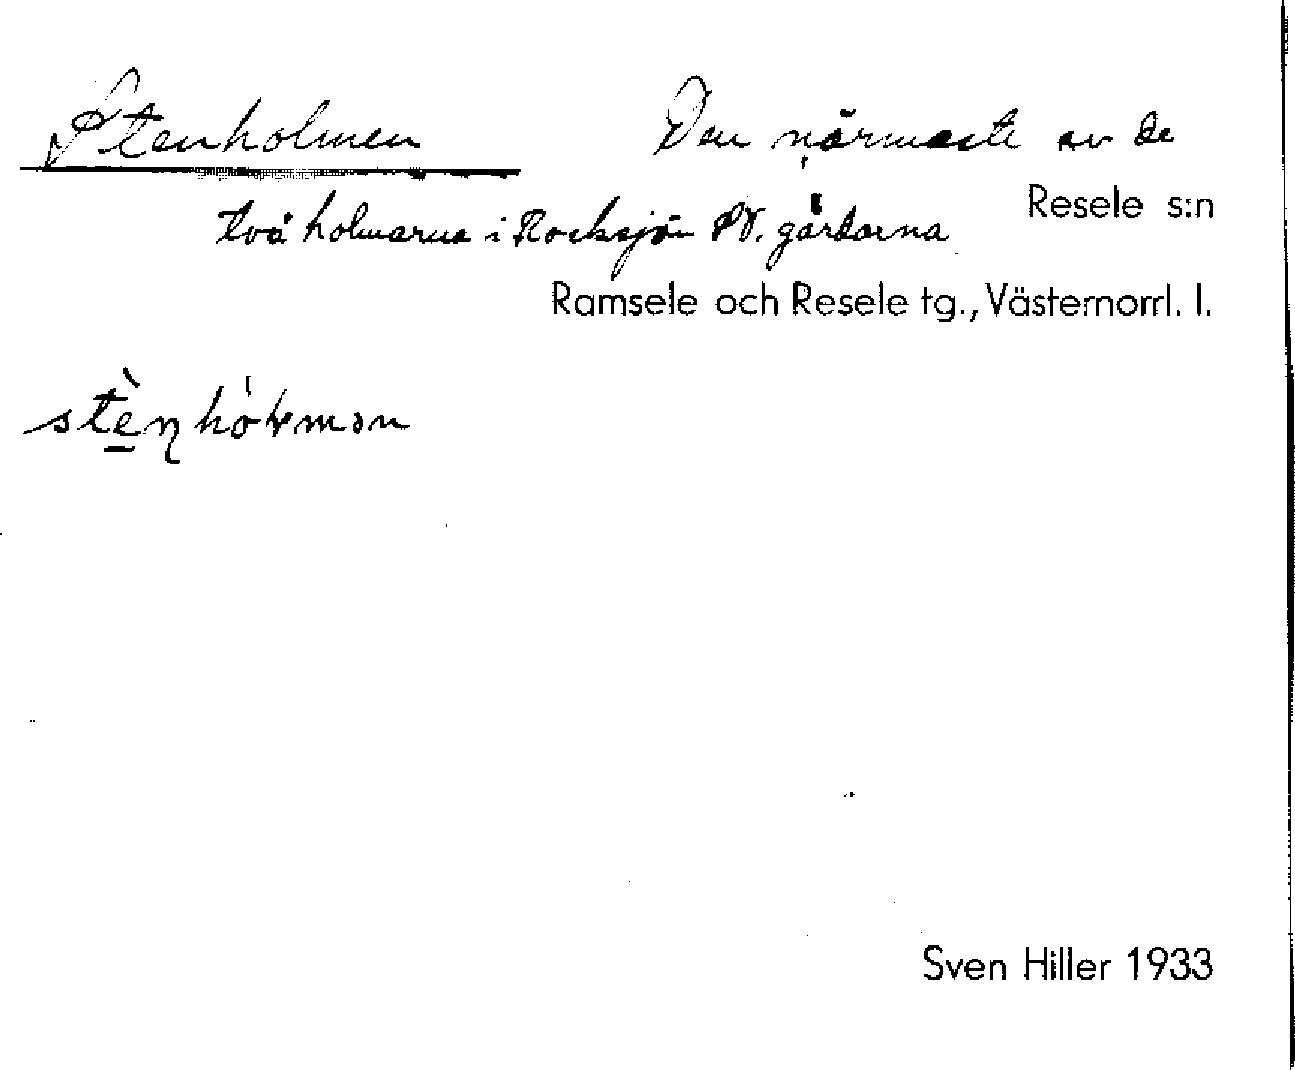 Stenholmen Den närmaste av de
Resele s:n
två holmarna i Rocksjön SV. gårdarna
Ramsele och Resele tg., Västernorrl. l.
Sven Hiller 1933